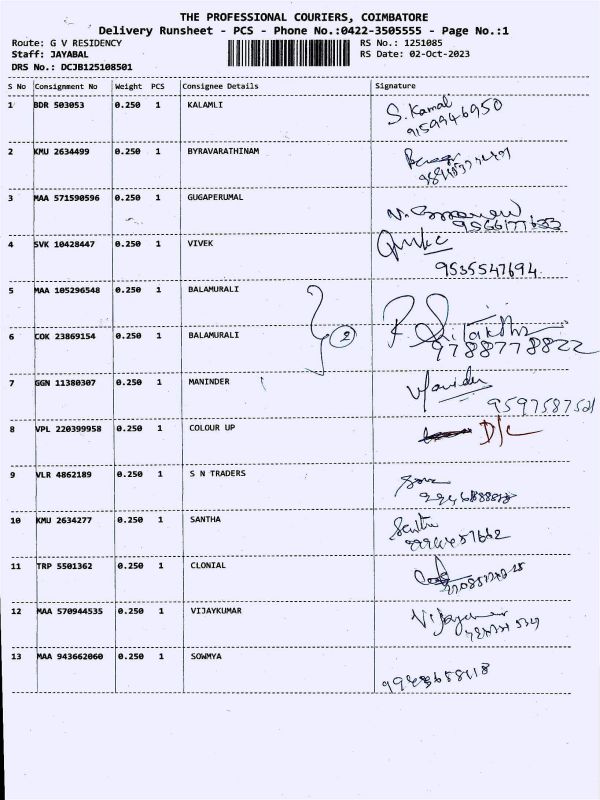 THE PROFESSIONAL COURIERS, COIMBATORE
Delivery Runsheet - PCS - Phone No.:0422-3505555 - Page No.:1
Route: G V RESIDENCY
RS No.: 1251085
Staff: JAYABAL
RS Date: 02-Oct-2023
DRS No.: DCJB125108501
S No Consignment No Weight PCS Consignee Details Signature
1 BDR 503053 0.250 1 KALAMLI S. Kamal
9159946950
2 KMU 2634499 0.250 1 BYRAVARATHINAM
3 MAA 571590596 0.250 1 GUGAPERUMAL
9566177633
4 SVK 10428447 0.250 1 VIVEK
9535547694
5 MAA 105296548 0.250 1 BALAMURALI
6 COK 23869154 0.250 1 BALAMURALI 2
9788778822
7 GGN 11380307 0.250 1 MANINDER
9597587521
8 VPL 220399958 0.250 1 COLOUR UP D/c
9 VLR 4862189 0.250 1 S N TRADERS
10 KMU 2634277 0.250 1 SANTHA
11 TRP 5501362 0.250 1 CLONIAL
12 MAA 570944535 0.250 1 VIJAYKUMAR
13 MAA 943662060 0.250 1 SOWMYA